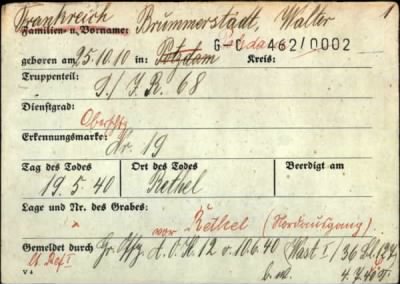 Frankreich Brummerstädt, Walter 1
Familien- u. Vorname:
G-C 462/0002
geboren am 25.10.10 in: Potsdam Kreis:
Truppenteil: 9./J.R. 68
Dienstgrad:
Obersch.
Erkennungsmarke: Nr. 19
Tag des Todes Ort des Todes Beerdigt am
19.5.40 Rethel
Lage und Nr. des Grabes:
vor Rethel (Nordausgang)
Gemeldet durch Gr. Offz. A.O.K. 12 v. 10.6.40 Wast I/36 Bl. 127
V 4 b.w. 4.7.40